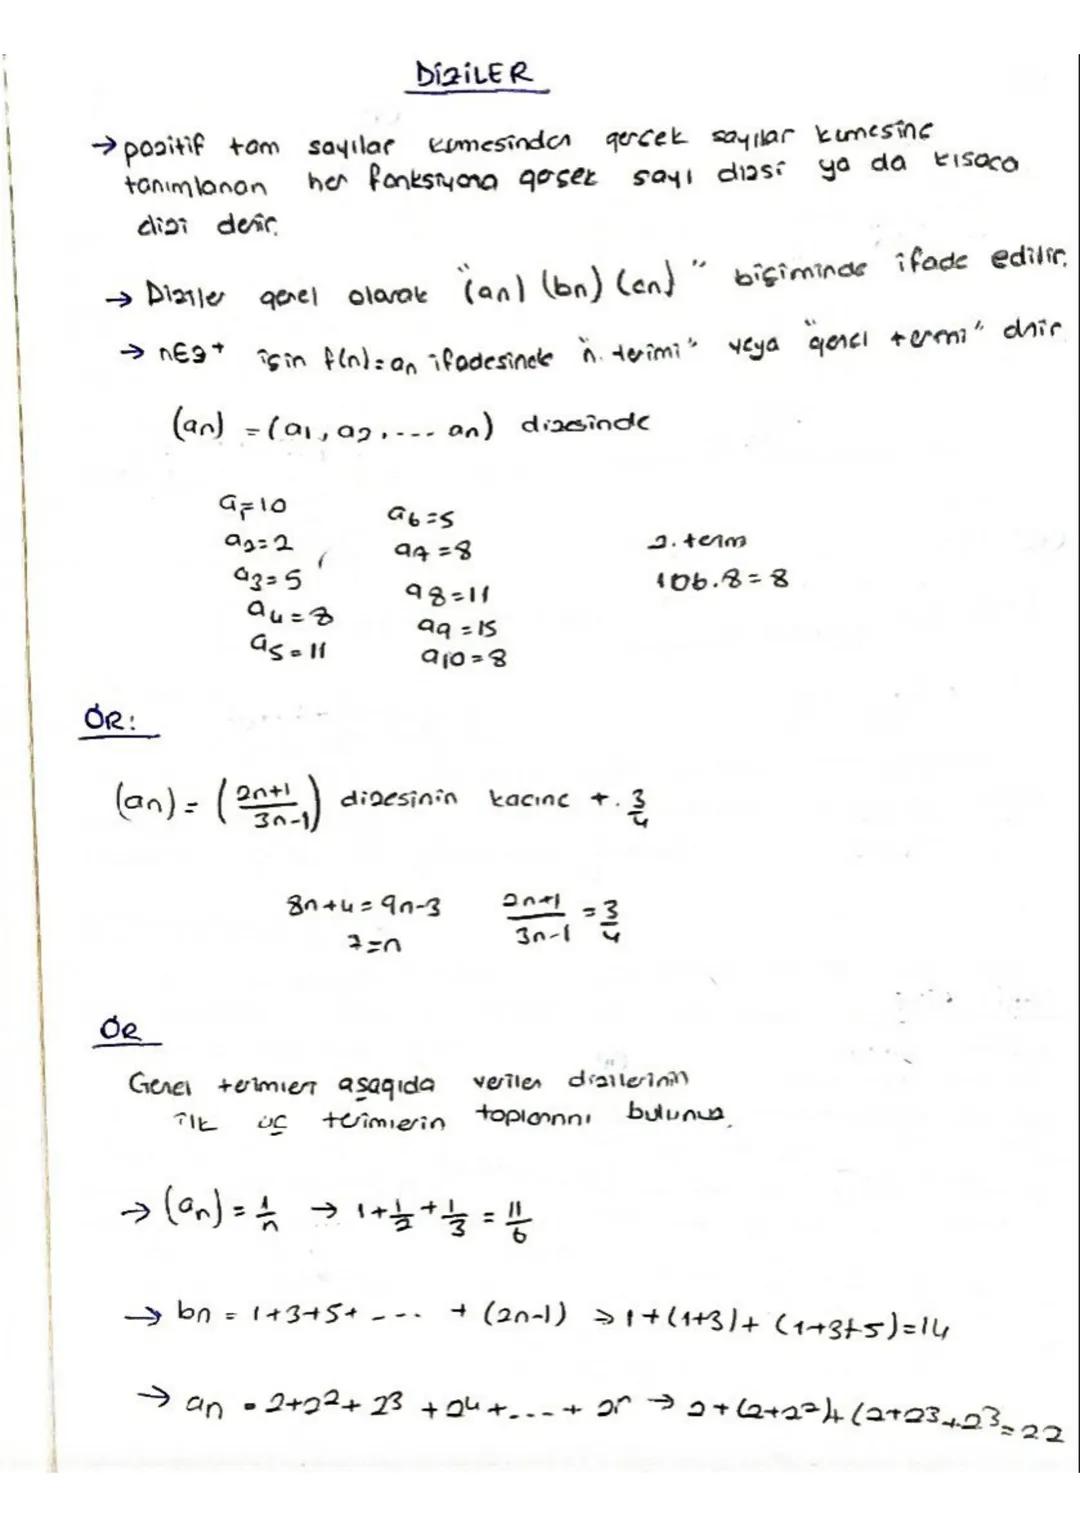 DİZİLER
→ pozitif tam sayılar kümesinden gerçek sayılar kümesine
tanımlanan her fonksiyona gerçek sayı dizisi ya da kısaca
dizi denir.
→ Diziler genel olarak "(an) (bn) (cn)" biçiminde ifade edilir.
→ n∈z+ için f(n)=an ifadesinde "n. terimi" veya "genel terimi" denir
(an) = (a1, a2, .... an) dizisinde
a1=10 a6=5
a2=2 a7=8 2. terim
a3=5 a8=11 106.8=8
a4=8 a9=15
a5=11 a10=8
ÖR:
(an) = (2n+1/3n-1) dizesinin kacınc t. 3/4
8n+4=9n-3 2n+1/3n-1 = 3/4
7=n
ÖR
Genel terimleri aşağıda verilen dizilerinin
ilk üç terimlerin toplamını bulunuz.
→ (an) = 1/n → 1+1/2+1/3 = 11/6
→ bn = 1+3+5+ .... + (2n-1) → 1+(1+3)+(1+3+5)=14
→ an = 2+2²+2³+2⁴+...+2ⁿ → 2+(2+2²)+(2+2³+2³=22